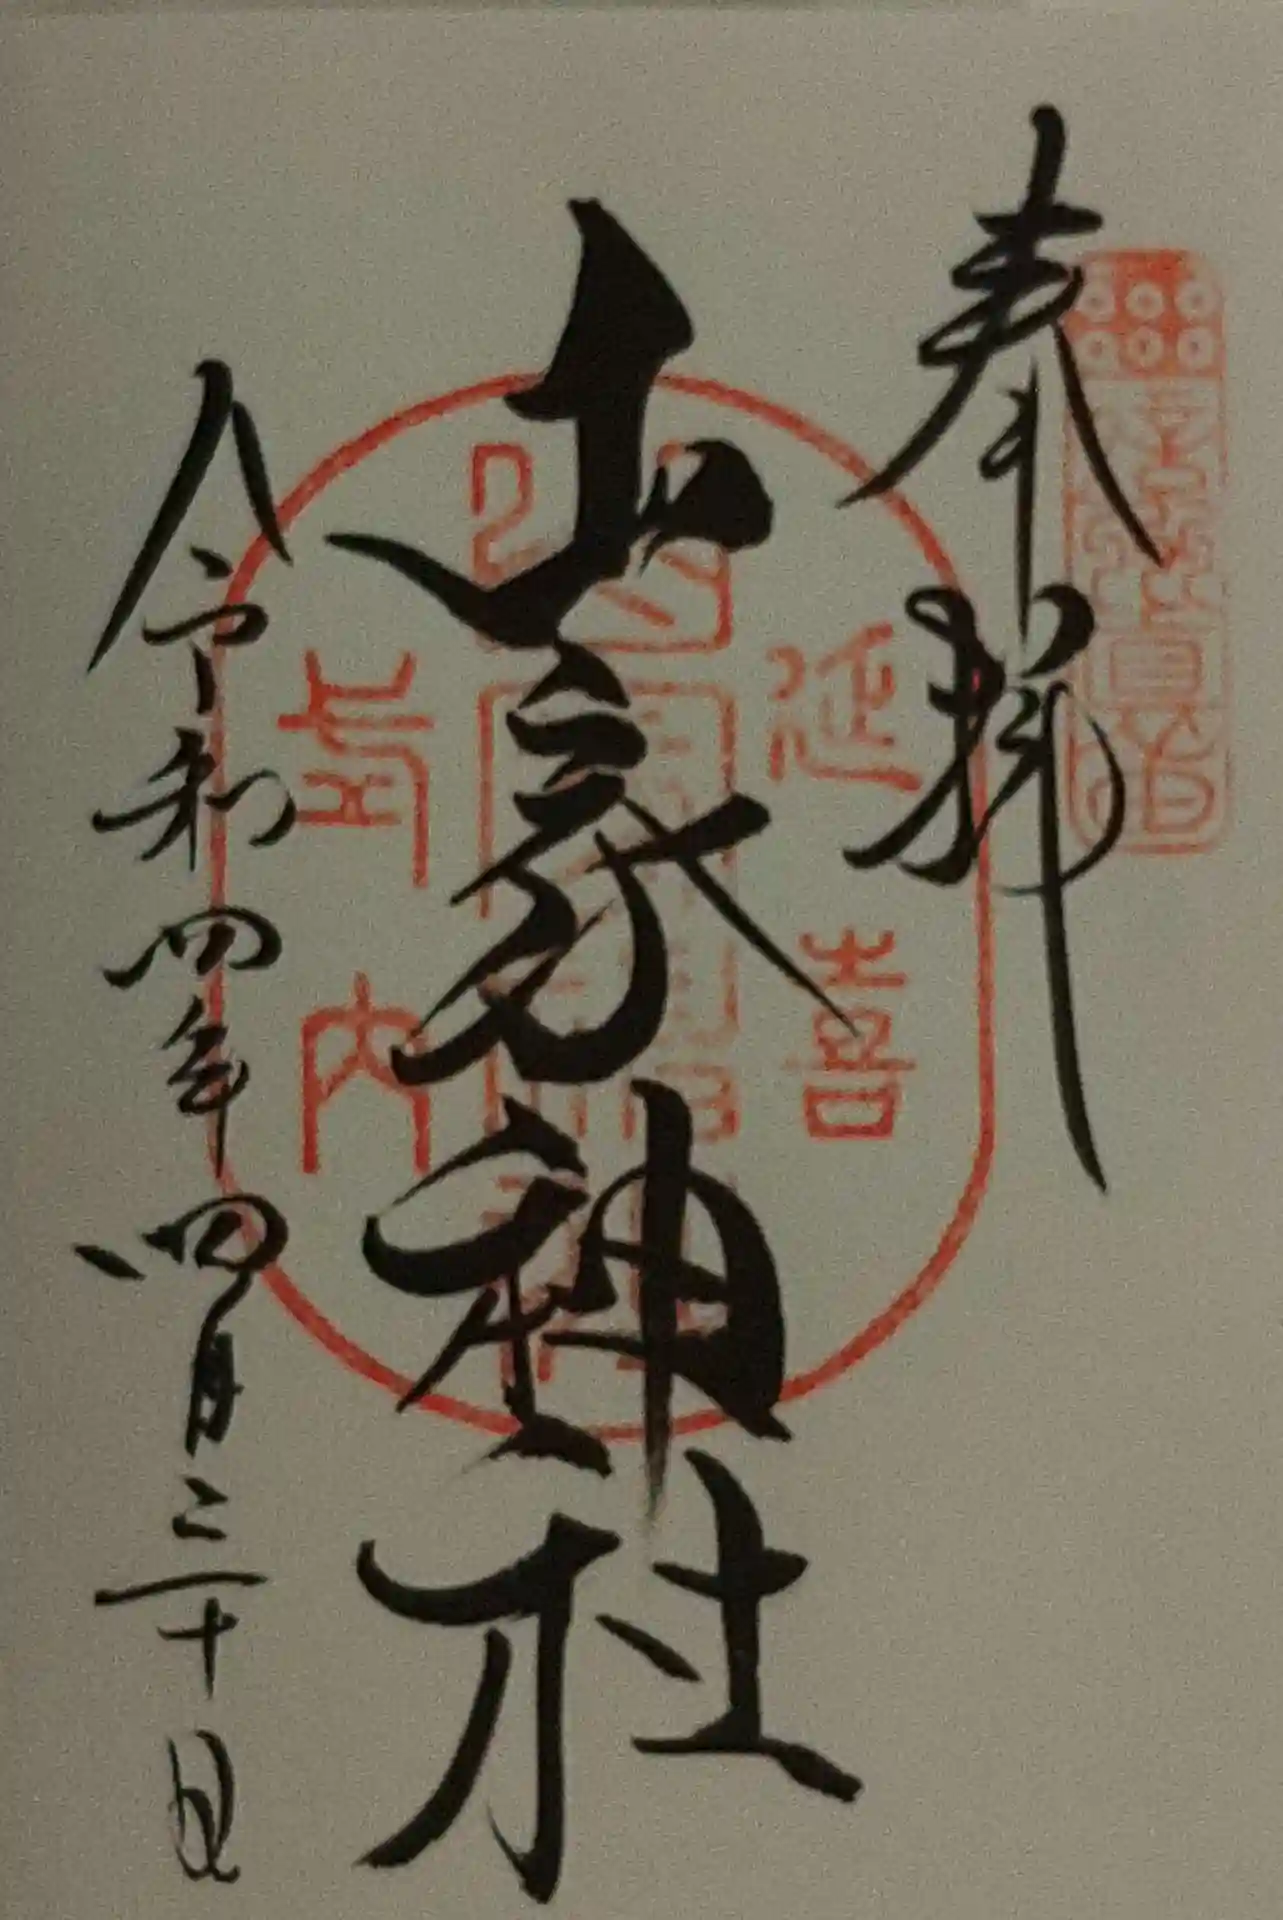 奉拝
山家神社
令和四年四月三十日
延喜
式内